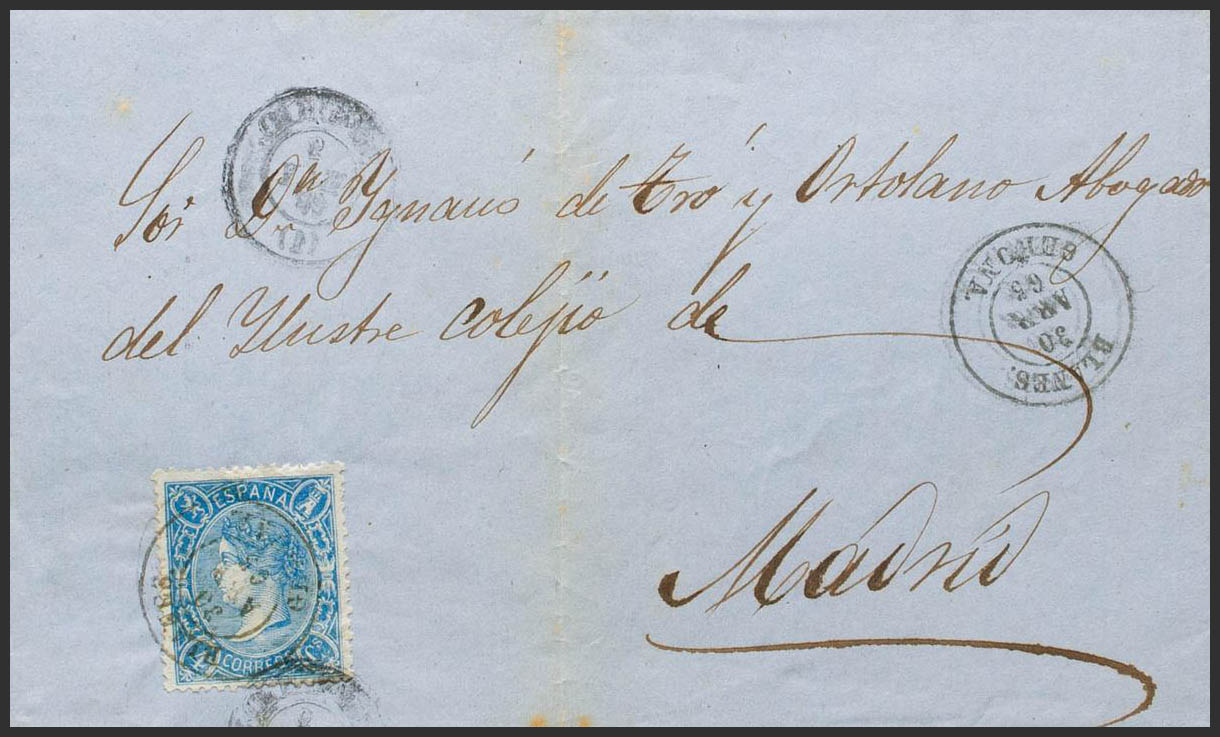 Sor Dn Ygnacio de Tró y Ortolano Abogado
del Ylustre colejio de
Madrid
BLANES.
30
ABR
65
GERONA
ESPANA
CORREOS
4 Cs